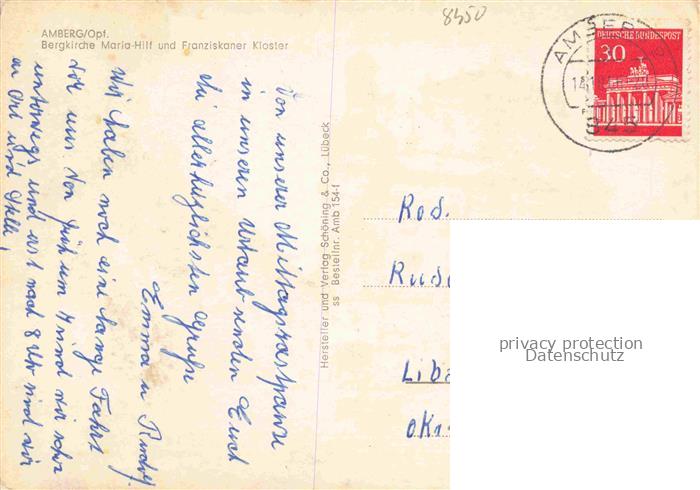 8450
AMBERG/Opf.
Bergkirche Maria-Hilf und Franziskaner Kloster
Von unserer Mittagsrastpause
in unseren Urlaub senden Euch
die allerherzlichsten Grüße
Emma u Rudolf
Wir haben noch eine lange Fahrt
vor uns. Von früh um 4 sind wir schon
unterwegs und erst nach 8 Uhr sind wir
an Ort und Stelle!
Hersteller und Verlag Schöning & Co., Lübeck
ss Bestellnr. Amb 154-f
DEUTSCHE BUNDESPOST
30
AMBERG
845
Rod.
Rud
Liba
okr.
privacy protection
Datenschutz